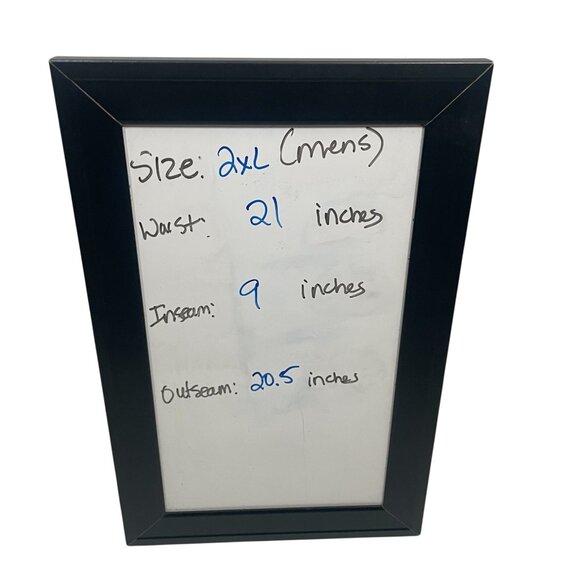 Size: 2xL (mens)
Waist: 21 inches
Inseam: 9 inches
Outseam: 20.5 inches